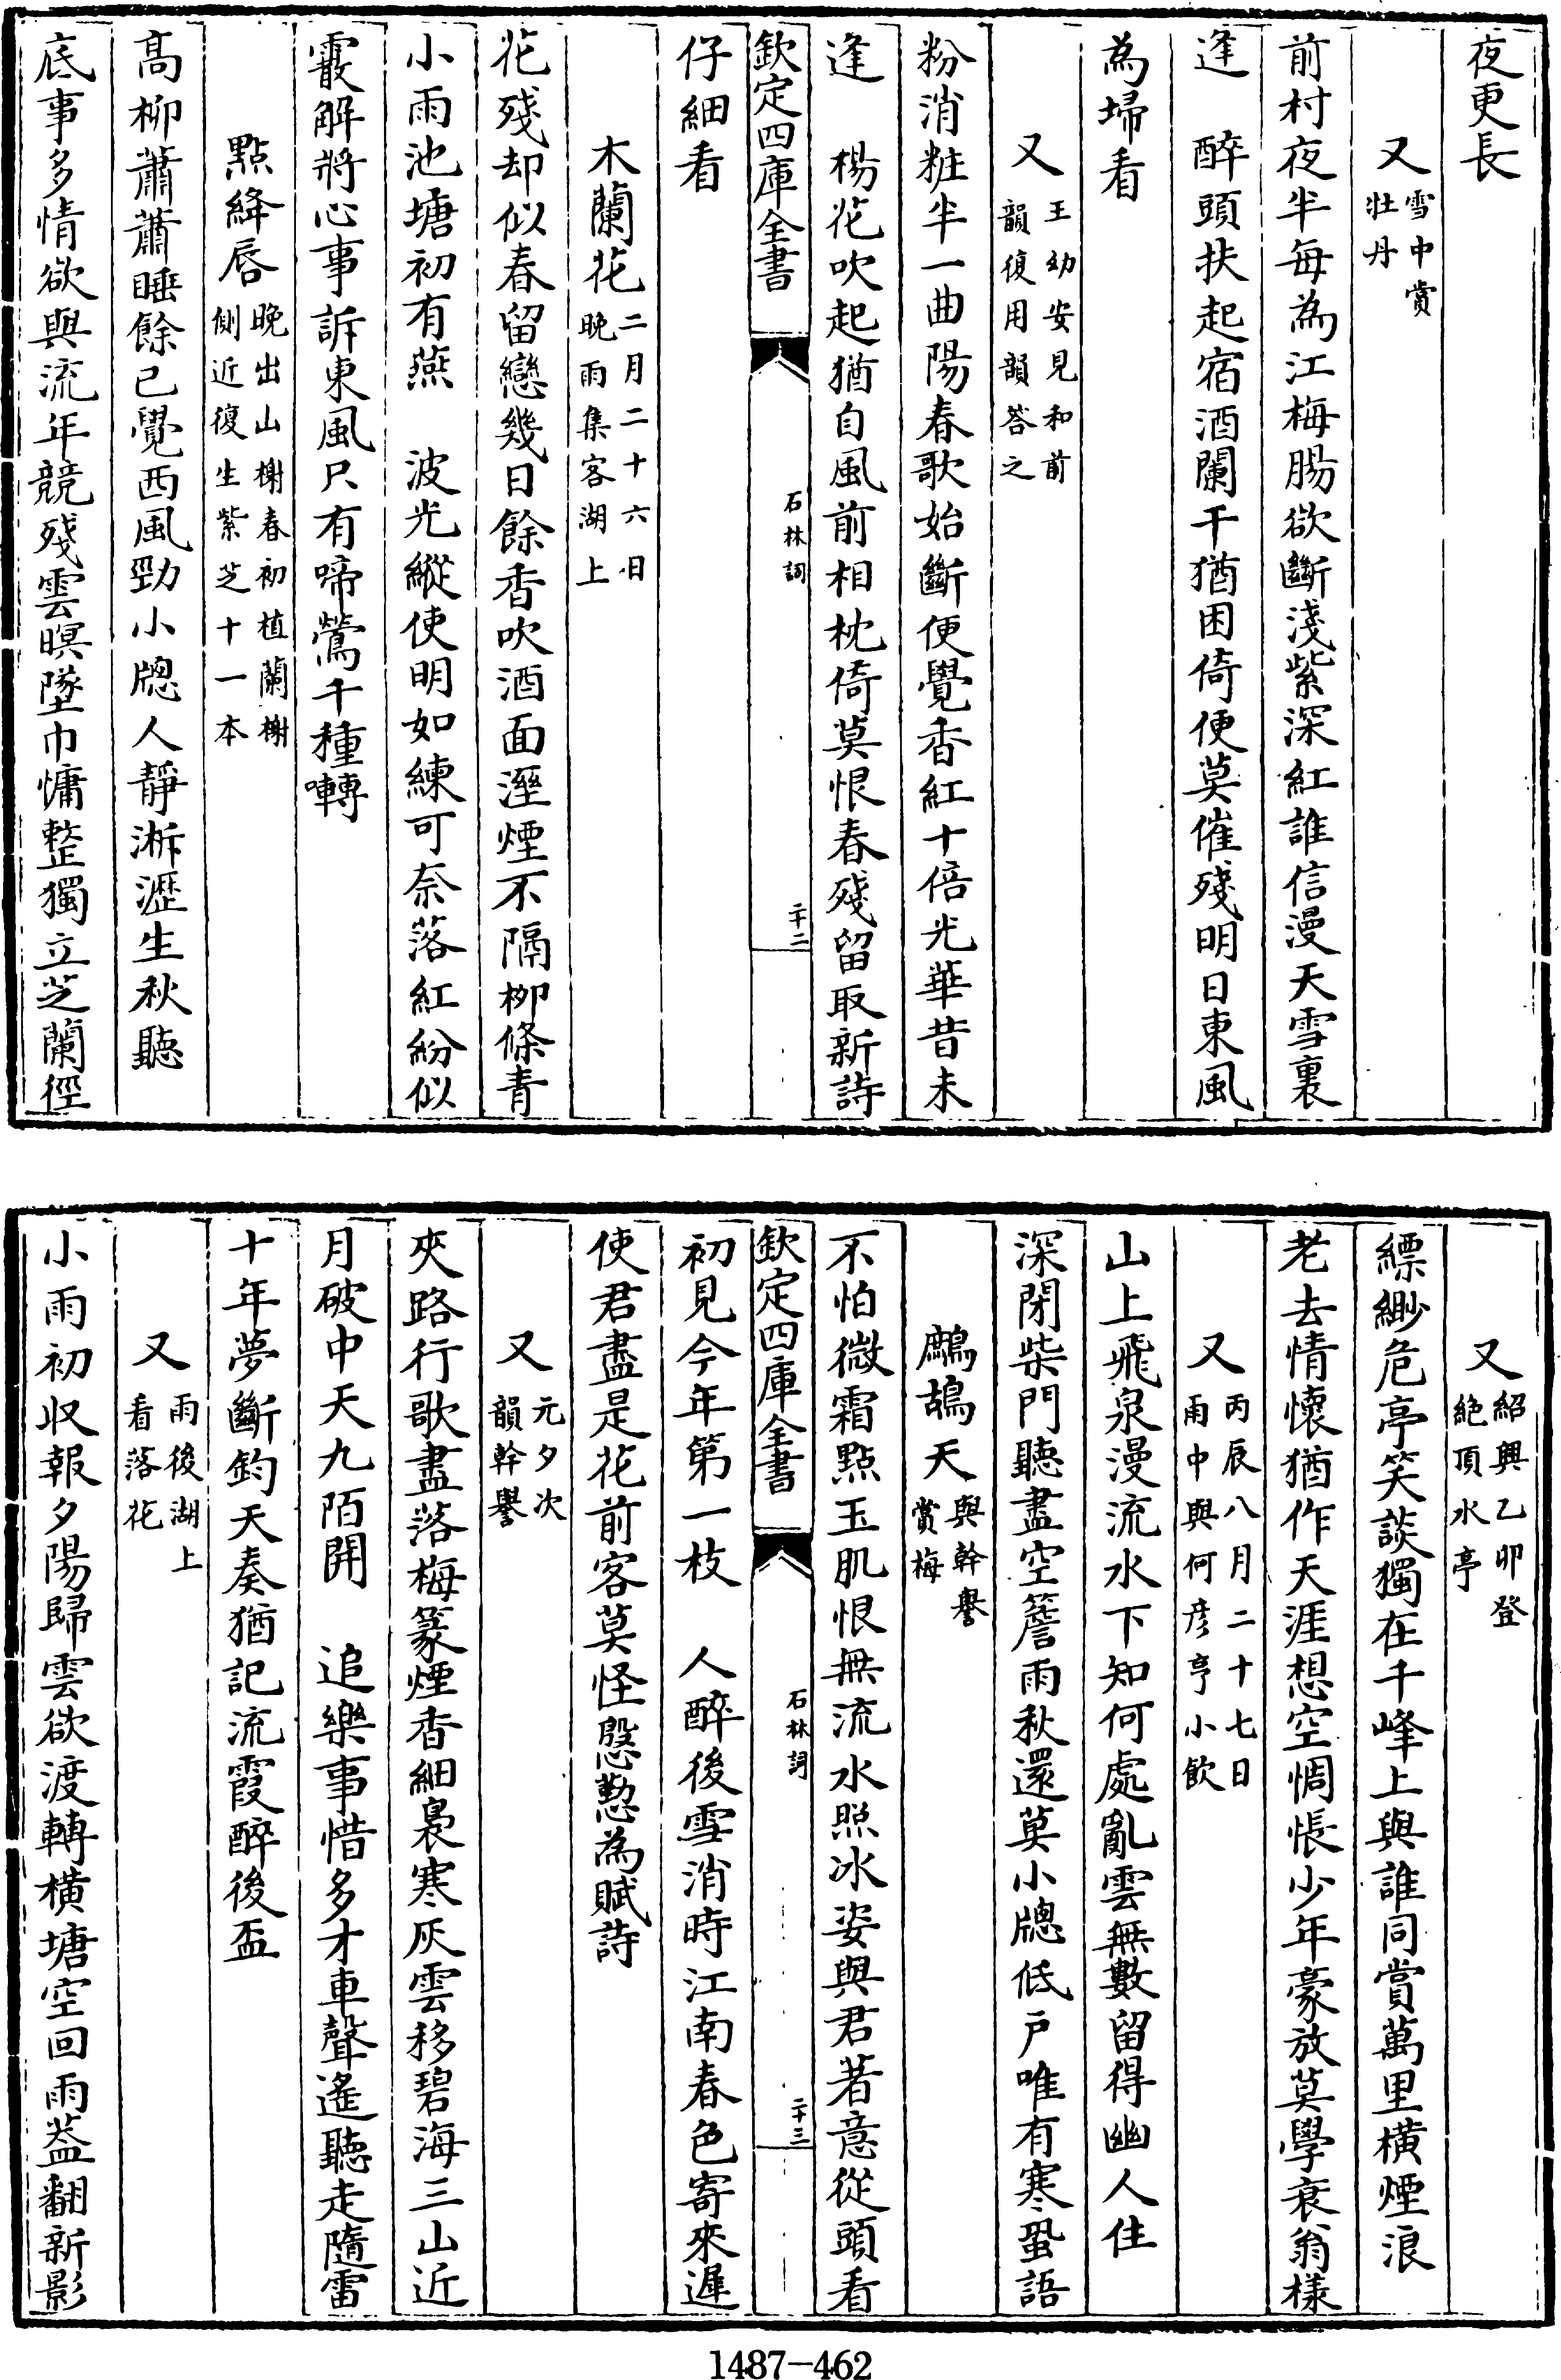 夜更長
又雪中賞
牡丹
前村夜半每為江梅腸欲斷淺紫深紅誰信漫天雪裏
逢　醉頭扶起宿酒闌干猶困倚便莫催殘明日東風
為埽看
又王幼安見和前
韻復用韻答之
粉消粧半一曲陽春歌始斷便覺香紅十倍光華昔未
逢　楊花吹起猶自風前相枕倚莫恨春殘留取新詩
仔細看
欽定四庫全書
石林詞
二十二
木蘭花二月二十六日
晚雨集客湖上
花殘却似春留戀幾日餘香吹酒面溼煙不隔柳條青
小雨池塘初有燕　波光縱使明如練可奈落紅紛似
霰解將心事訴東風只有啼鶯千種囀
點絳唇晚出山榭春初植蘭榭
側近復生紫芝十一本
高柳蕭蕭睡餘已覺西風勁小牕人靜淅瀝生秋聽
底事多情欲與流年競殘雲暝墜巾慵整獨立芝蘭徑
又紹興乙卯登
絶頂水亭
縹緲危亭笑談獨在千峰上與誰同賞萬里橫煙浪
老去情懷猶作天涯想空惆悵少年豪放莫學衰翁樣
又丙辰八月二十七日
雨中與何彦亨小飲
山上飛泉漫流水下知何處亂雲無數留得幽人住
深閉柴門聽盡空簷雨秋還莫小牕低户唯有寒蛩語
鷓鴣天與幹譽
賞梅
不怕微霜點玉肌恨無流水照冰姿與君著意從頭看
初見今年第一枝　人醉後雪消時江南春色寄來遲
使君盡是花前客莫怪慇懃為賦詩
欽定四庫全書
石林詞
二十三
又元夕次
韻幹譽
夾路行歌盡落梅篆煙香細裊寒灰雲移碧海三山近
月破中天九陌開　追樂事惜多才車聲遙聽走隨雷
十年夢斷鈞天奏猶記流霞醉後盃
又雨後湖上
看落花
小雨初收報夕陽歸雲欲渡轉橫塘空回雨葢翻新影
1487-462